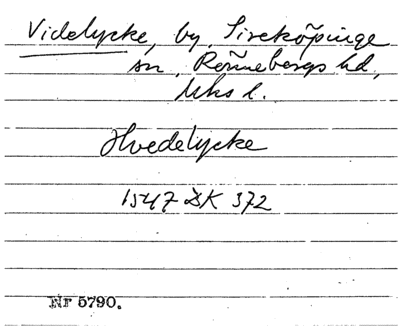 Videlycke, by, Sireköpinge
sn, Rönnebergs hd,
Mhs l.
Hvedelycke
1547 DK 372
Nr 5790.